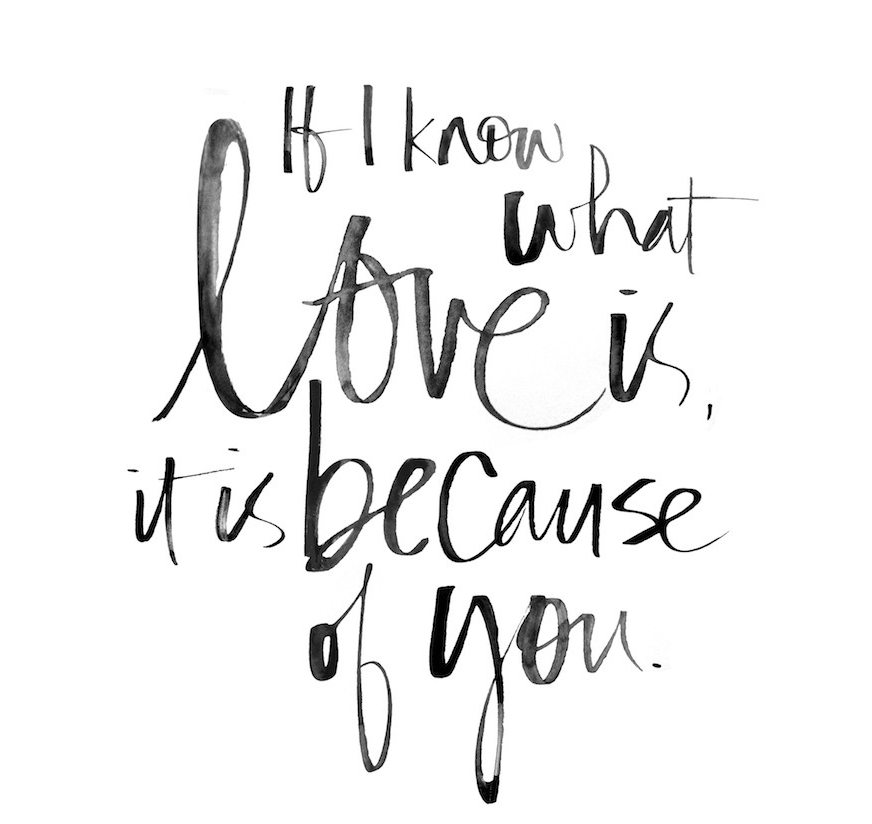 If I know
what
love is,
it is because
of you.